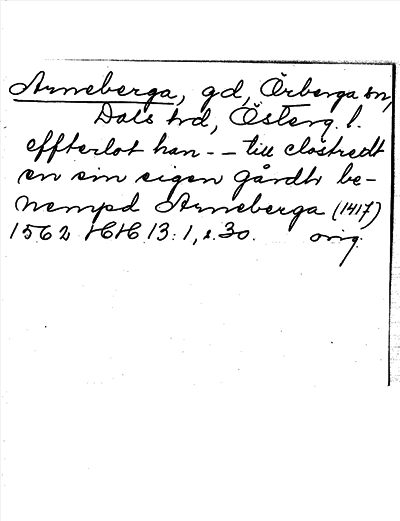 Arneberga, gd, Örberga sn,
Dals hd, Österg. l.
effterlot han - - till clöstredt
en sin eigen gårdh be-
nempd Arneberga (1417)
1562 HH 13:1, s. 30. orig.